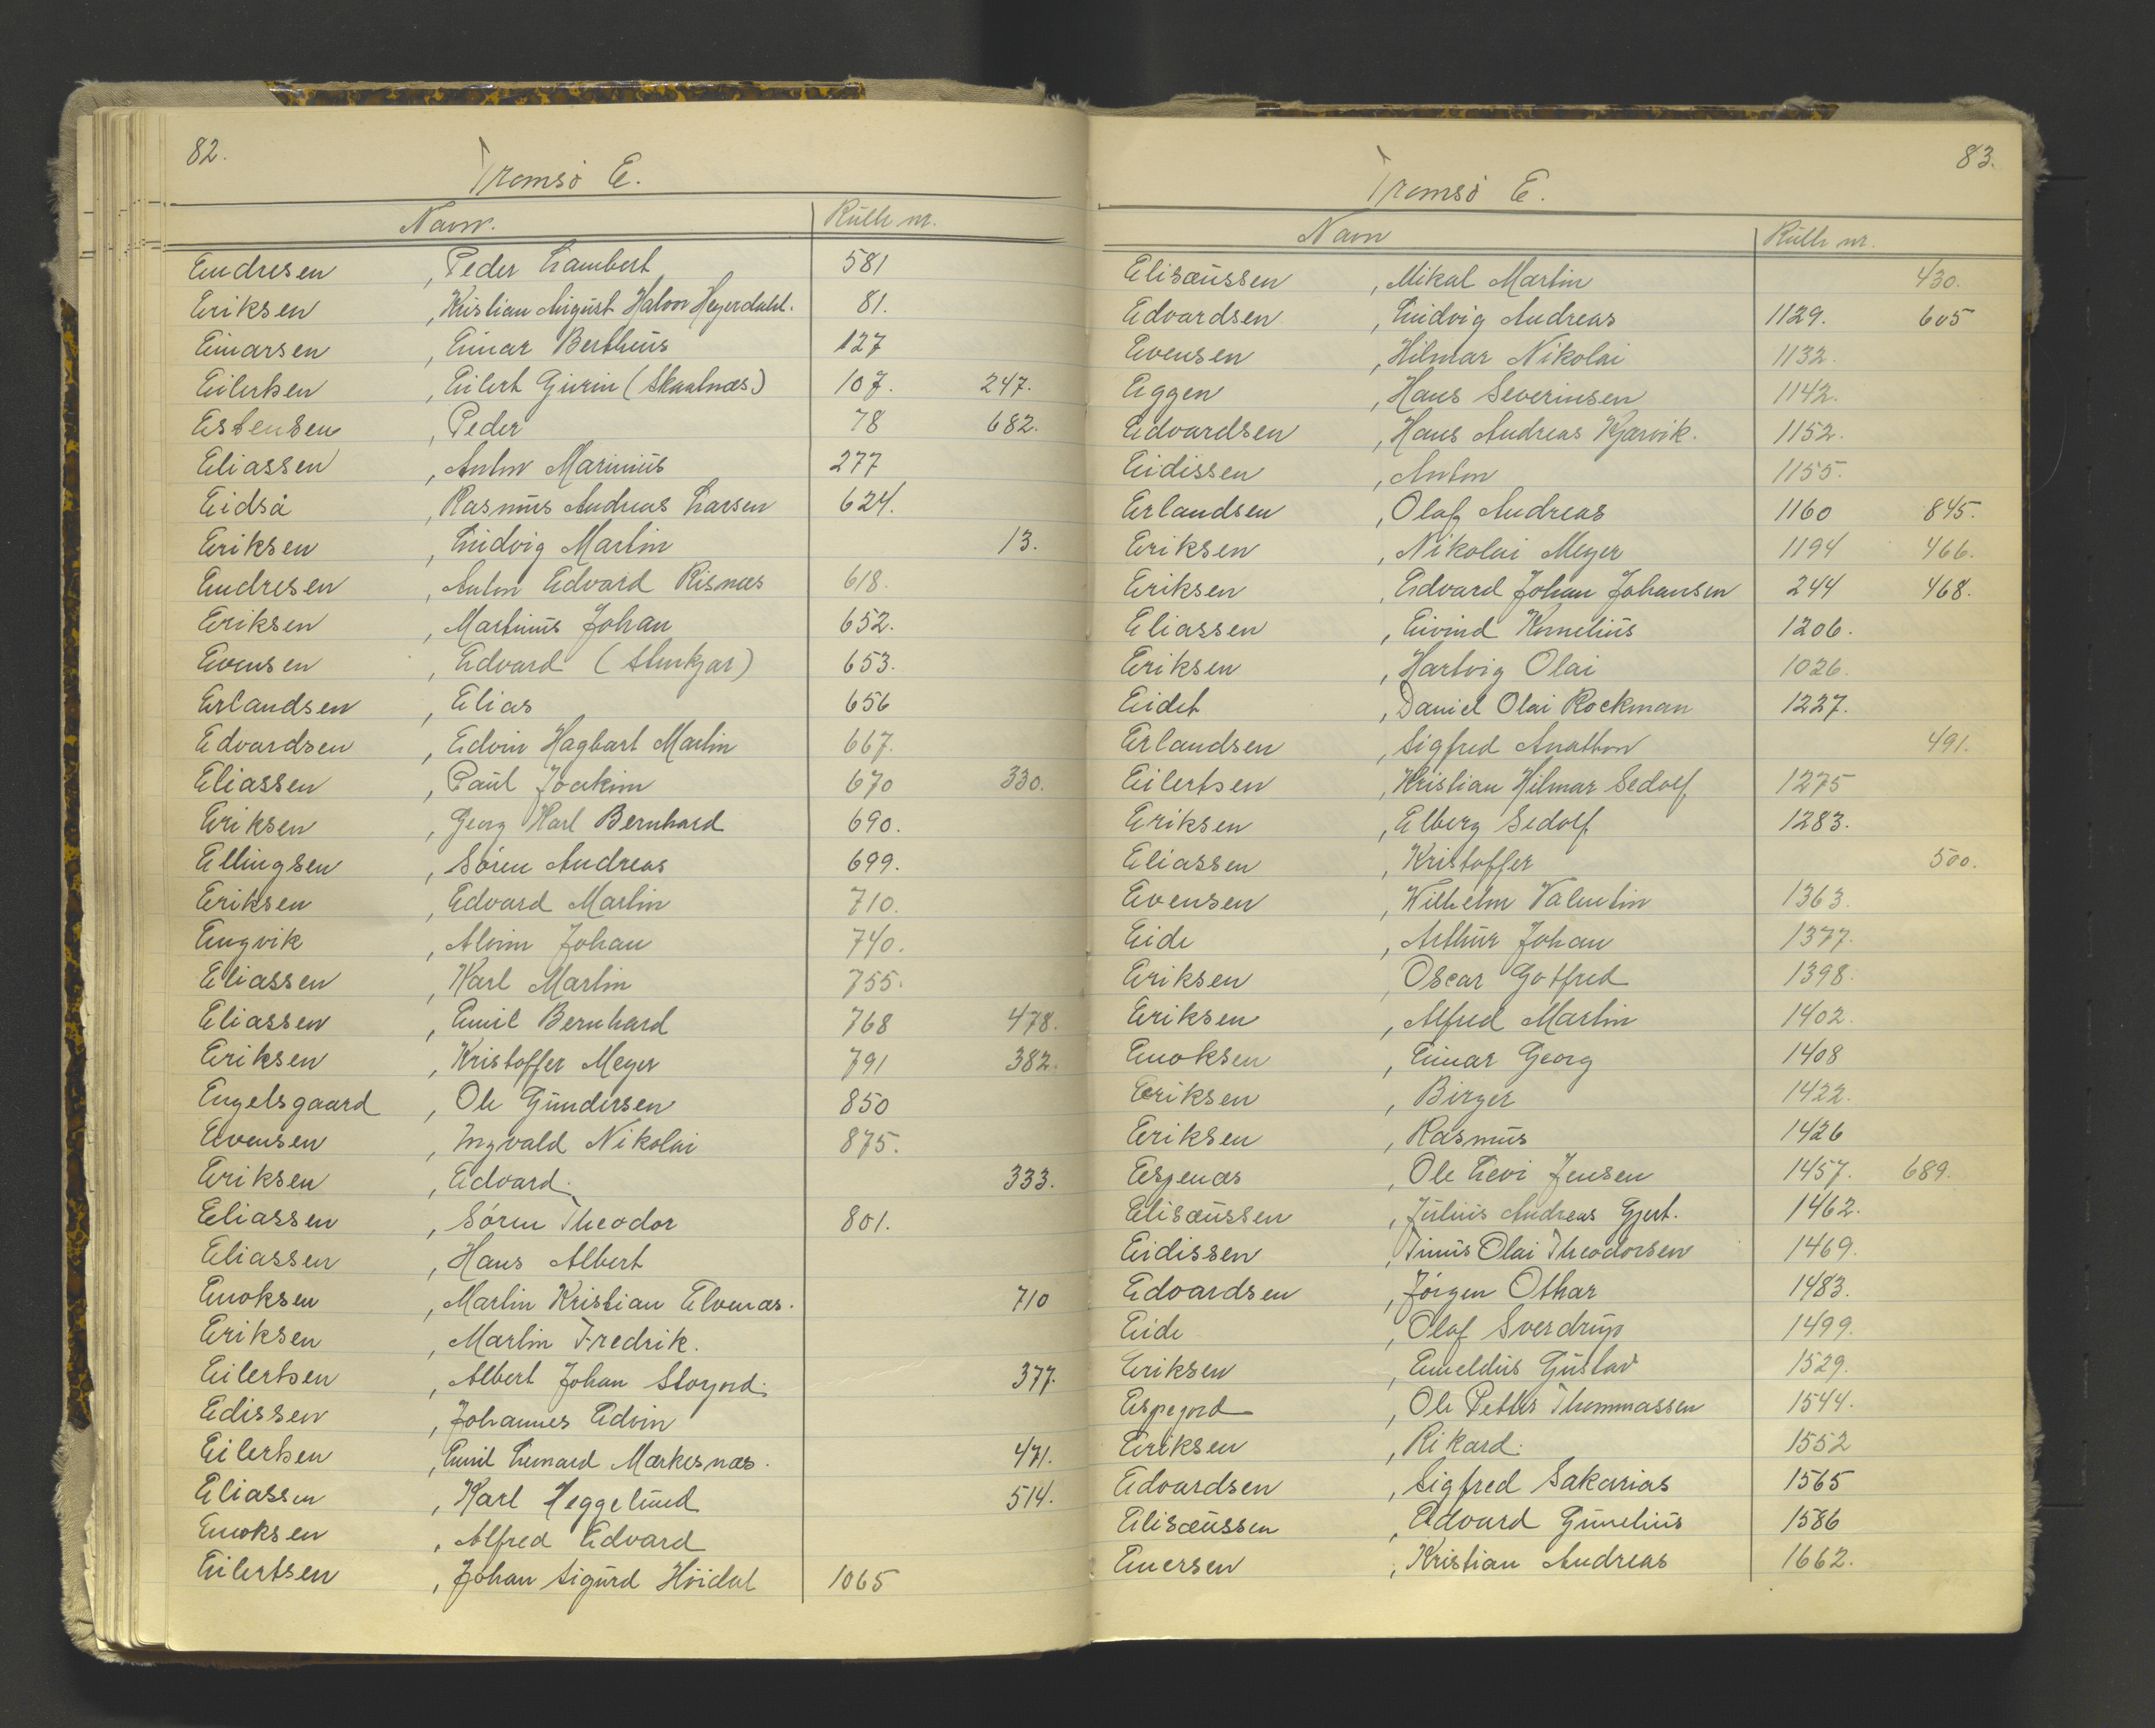 82.
Tromsø E.
Navn. Rulle nr.
Endresen , Peder Lambert 581
Eriksen , Kristian August Halvor Heyerdahl. 81.
Einarsen , Einar Bertheus 127
Eilertsen , Eilert Gjurin (Skaalnæs.) 107. 247.
Estensen , Peder 78 682.
Eliassen , Anton Marinius 277
Eidså , Rasmus Andreas Larsen 624.
Eriksen , Ludvig Martin 13.
Endresen , Anton Edvard Risnæs 618.
Eriksen , Martinus Johan 652.
Evensen , Edvard 653.
Erlandsen , Elias 656
Edvardsen , Edvin Hagbart Martin 667.
Eliassen , Paul Joakim 670 330.
Eriksen , Georg Karl Bernhard 690.
Ellingsen , Søren Andreas 699.
Eriksen , Edvard Martin 710.
Engvik , Alvin Johan 740.
Eliassen , Karl Martin 755.
Eliassen , Emil Bernhard 768 478.
Eriksen , Kristoffer Meyer 791 382.
Engelsgaard , Ole Gundersen 850
Evensen , Ingvald Nikolai 875.
Eriksen , Edvard. 333.
Eliassen , Søren Theodor 801.
Eliassen , Hans Albert
Enoksen , Martin Kristian Elvenæs. 710
Eriksen , Martin Fredrik.
Eilertsen , Albert Johan 377.
Edissen , Johannes Edvin
Eilertsen , Emil Lenard Markesnæs. 471.
Eliassen , Karl Heggelund 514.
Enoksen , Alfred Edvard
Eilertsen , Johan Sigurd Høidal 1065
83.
Tromsø E.
Navn Rulle nr.
Elisæussen , Mikal Martin 430.
Edvardsen , Ludvig Andreas 1129. 605
Evensen , Hilmar Nikolai 1132.
Eggen , Hans Severinsen 1142.
Edvardsen , Hans Andreas Kjærvik. 1152.
Eidissen , Anton 1155.
Erlandsen , Olaf Andreas 1160 845.
Eriksen , Nikolai Meyer 1194 466.
Eriksen , Edvard Johan Johansen 244 468.
Eliassen , Eivind Kornelius 1206.
Eriksen , Hartvig Olai 1026.
Eidet , Daniel Olai Rockman 1227.
Erlandsen , Sigfred Anathon 491.
Eilertsen , Kristian Hilmar Sedolf 1275
Eriksen , Elberg Sedolf 1283.
Eliassen , Kristoffer 500.
Evensen , Wilhelm Valentin 1363.
Eide , Arthur Johan 1377.
Eriksen , Oscar Gotfred 1398.
Eriksen , Alfred Martin 1402.
Enoksen , Einar Georg 1408
Eriksen , Birger 1422.
Eriksen , Rasmus 1426
Espenæs , Ole Levi Jensen 1457. 689.
Elisæussen , Julius Andreas Gjert. 1462.
Eidissen , Tinus Olai Theodorsen 1469.
Edvardsen , Jørgen Othar 1483.
Eide , Olaf Sverdrup 1499.
Eriksen , Emeldus Gustav 1529.
Espejord , Ole Petter Thommassen 1544.
Eriksen , Rikard. 1552
Edvardsen , Sigfred Sakarias 1565
Elisæussen , Edvard Gunelius 1586
Enersen , Kristian Andreas 1662.